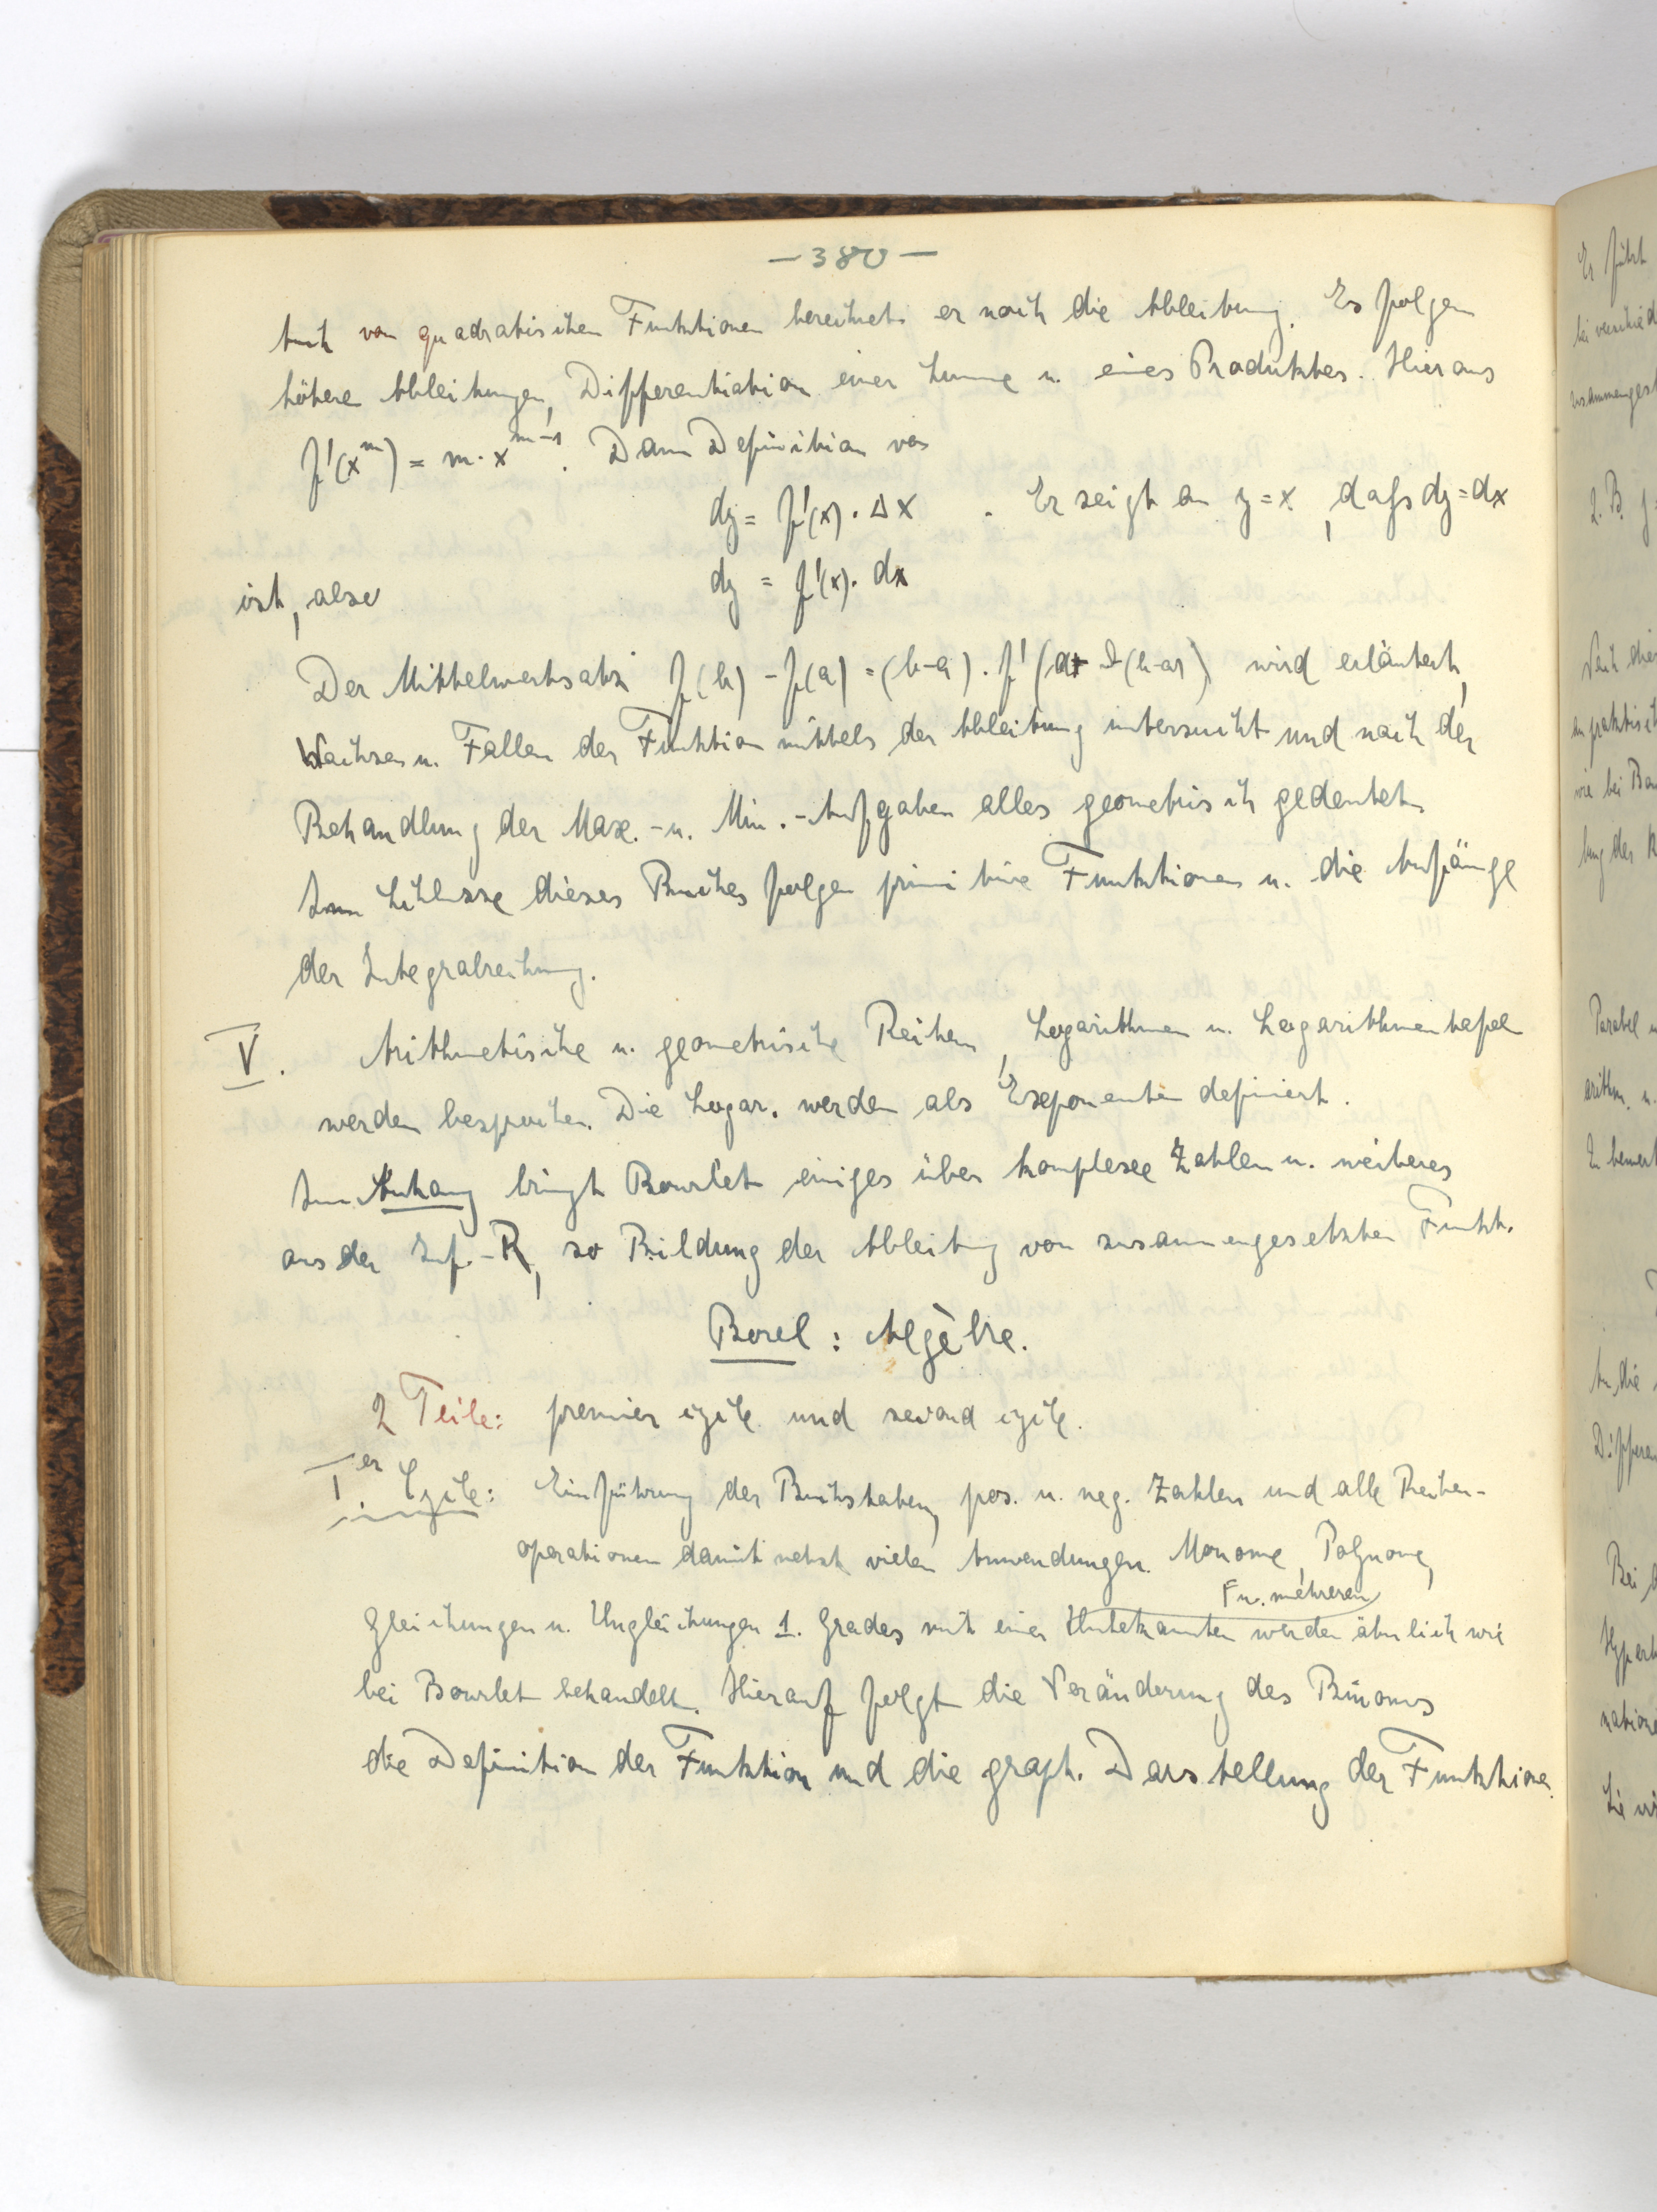 - 380 -
Auch von quadratischen Funktionen berechnet er noch die Ableitung. Es folgen
höhere Ableitungen, Differentiation einer Summe u. eines Produktes. Hieraus
f'(x^m) = m · x^{m-1}. Dann Definition von
dy = f'(x) · Δx . Er zeigt an y = x, daſs dy = dx
ist, also dy = f'(x) · dx
Der Mittelwertsatz f(b) - f(a) = (b-a) · f'(a + ϑ(b-a)) wird erläutert,
Wachsen u. Fallen der Funktion mittels der Ableitung untersucht und nach der
Behandlung der Max. - u. Min. - Aufgaben alles geometrisch gedeutet.
Zum Schlusse dieses Buches folgen primitive Funktionen u. die Anfänge
der Integralrechnung.
V. Arithmetische u. geometrische Reihen, Logarithmen u. Logarithmentafeln
werden besprochen. Die Logar. werden als Exponenten definiert.
Im Anhang bringt Bourlet einiges über komplexe Zahlen u. weiteres
aus der Inf.-R, so Bildung der Ableitung von zusammengesetzten Funkt.
Borel : Algèbre.
2 Teile: premier cycle und second cycle.
I^er Cycle: Einführung der Buchstaben, pos. u. neg. Zahlen und alle Rechen-
operationen damit nebst vielen Anwendungen. Monome, Polynome,
u. mehreren
Gleichungen u. Ungleichungen 1. Grades mit einer Unbekannten werden ähnlich wie
bei Bourlet behandelt. Hierauf folgt die Veränderung des Binoms
die Definition der Funktion und die graph. Darstellung der Funktionen.
Er führt
2. B. y =
wie bei Bou
Parabel u
arithm. u.
Zu bemerk
An die
Differen
Bei
Hyperb